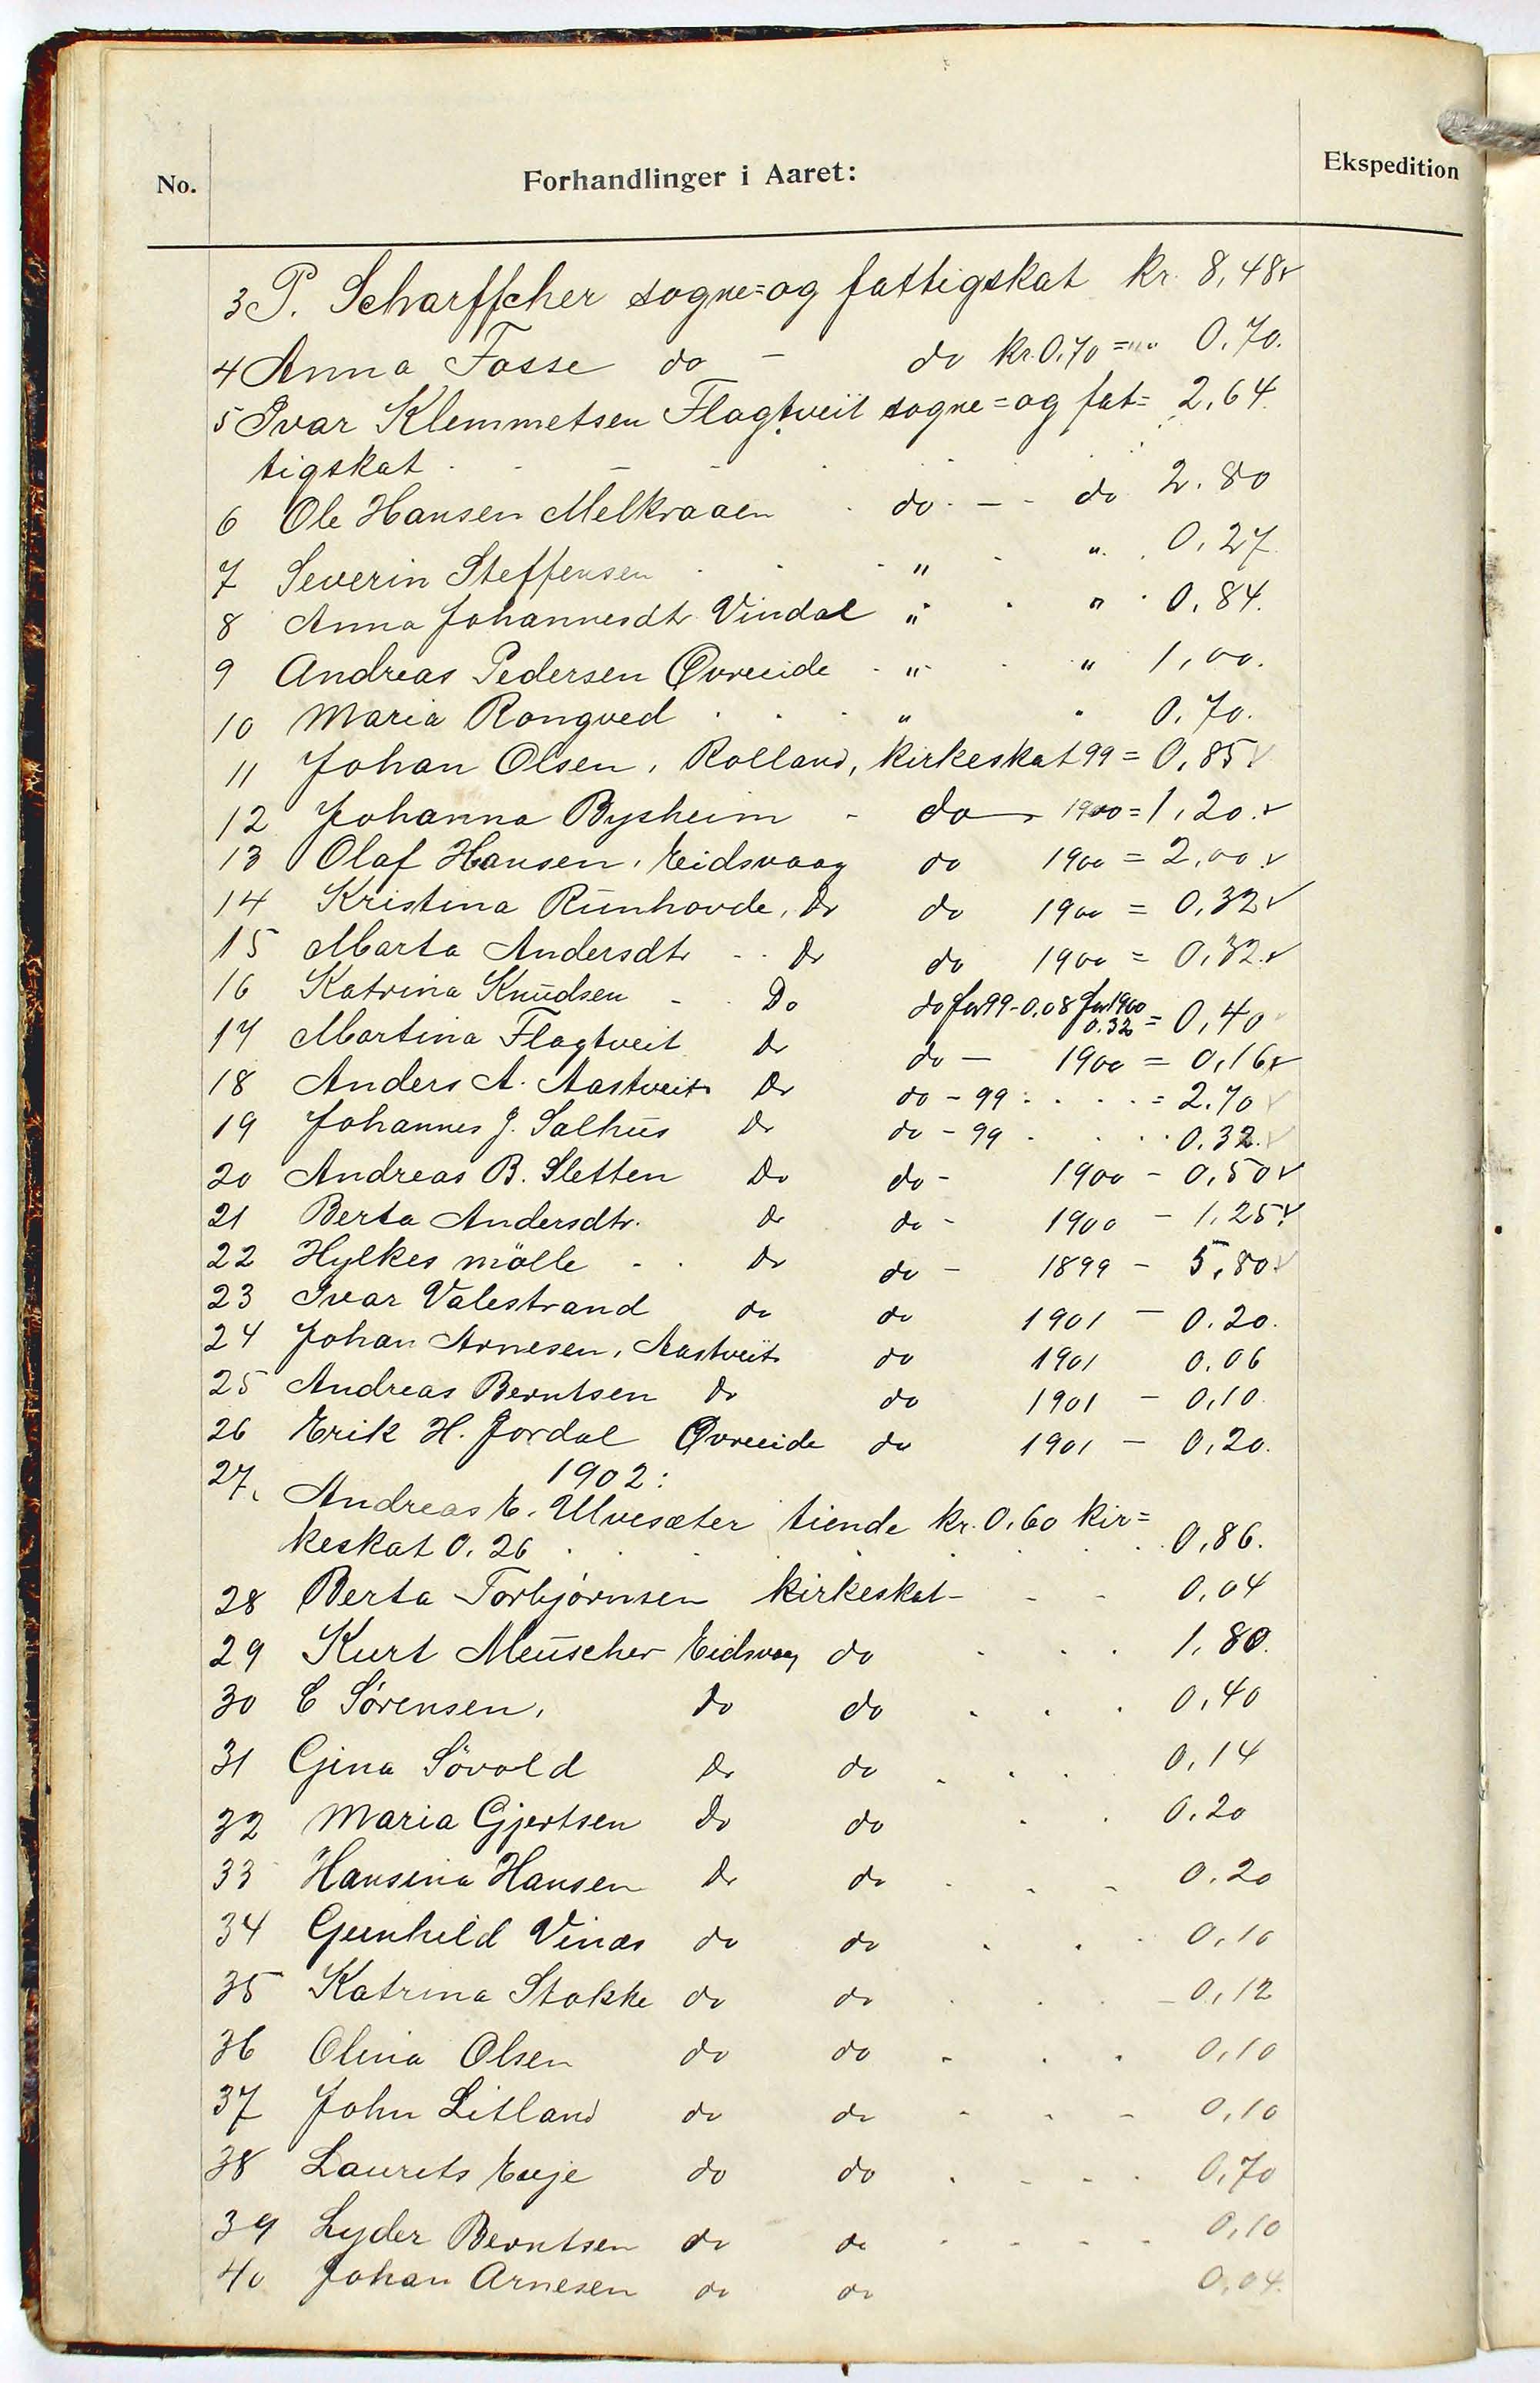 No. Forhandlinger i Aaret: Ekspedition
3 P. Scharffcher sogne= og fattigskat kr. 8,48 v
4 Anna Fosse do - do kr. 0,70 = " 0,70.
5 Ivar Klemmetsen Flagtveit sogne= og fat= 2,64.
tigskat - -
6 Ole Hansen Melkraaen do - - do 2.80
7 Severin Steffensen " " 0,27.
8 Anna Johannesdtr Vindal " " 0,84.
9 Andreas Pedersen Øvreeide " " 1,00.
10 Maria Rongved " " 0,70.
11 Johan Olsen, Rolland, kirkeskat 99 = 0,85 v
12 Johanna Bysheim - do 1900 = 1,20. v
13 Olaf Hansen, Eidsvaag do 1900 = 2,00. v
14 Kristina Runhovde, do do 1900 = 0,32 v
15 Marta Andersdtr - do do 1900 = 0,32. v
16 Katrina Knudsen - Do do for 99 - 0,08 for 1900
0.32 = 0,40 v
17 Martina Flagtveit do do - 1900 = 0,16 v
18 Anders A. Aastveit do do - 99 = 2.70 v
19 Johannes J. Salhus do do - 99 0.32. v
20 Andreas B. Sletten Do do - 1900 - 0,50 v
21 Berta Andersdtr. do do - 1900 - 1,25. v
22 Hylkes mölle - do do - 1899 - 5,80. v
23 Ivar Valestrand do do 1901 - 0.20.
24 Johan Arnesen, Aastveit do 1901 0,06
25 Andreas Berntsen do do 1901 - 0,10.
26 Erik H. Jordal Øvreeide do 1901 - 0,20.
1902:
27. Andreas E. Ulvesæter tiende kr. 0,60 kir=
keskat 0,26 0,86.
28 Berta Torbjørnsen kirkeskat - - - 0,04
29 Kurt Meuscher Eidsvaag do 1,80.
30 C Sørensen, do do 0,40
31 Gina Sövold do do 0,14
32 Maria Gjertsen do do 0.20
33 Hansina Hansen do do 0.20
34 Gunhild Vinæs do do 0,10
35 Katrina Stokke do do - 0,12
36 Olina Olsen do do 0,10
37 John Litland do do 0,10
38 Laurits Euje do do 0,70
39 Lyder Berntsen do do 0,10
40 Johan Arnesen do do 0,04.